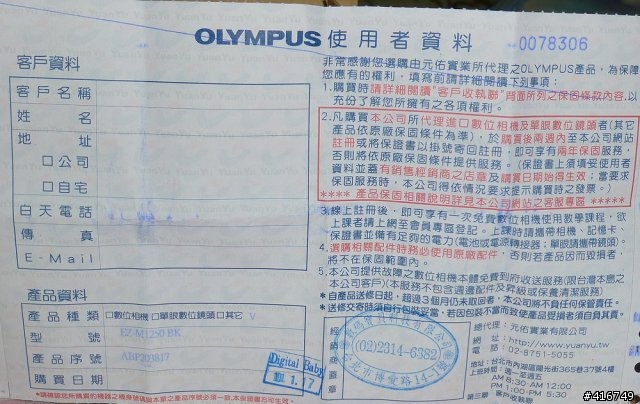 OLYMPUS 使用者資料
0078306
客戶資料
客戶名稱
姓名
地址
□公司
□自宅
白天電話
傳真
E-Mail
產品資料
產品種類 □數位相機 □單眼數位鏡頭 □其它 V
型號 EZ-M1250 BK
產品序號 ABP203817
購買日期
*請確認您所購買的機器之機身號碼與本單之產品序號必須一致,本保證書方可生效。
Digital Baby
101.1.17
非常感謝您選購由元佑實業所代理之OLYMPUS產品,為保障
您應有的權利,填寫前請詳細閱讀下列事項:
1.購買時請詳細閱讀"客戶收執聯"背面所列之保固條款內容,以
充份了解您所擁有之各項權利。
2.凡購買本公司所代理進口數位相機及單眼數位鏡頭者(其它
產品依原廠保固條件為準),於購買後兩週內至本公司網站
註冊或將保證書以掛號寄回註冊,即可享有兩年保固服務,
否則將依原廠保固條件提供服務。(保證書上須填妥使用者
資料並蓋有銷售經銷商之店章及購買日期始得生效,當要求
保固服務時,本公司得依情況要求提示購買時之發票。)
**** 產品保固相關說明詳見本公司網站之客服專區 ****
3.線上註冊後,即可享有一次免費數位相機使用教學課程,欲
上課者請上網至會員專區登記。上課時請攜帶相機、記憶卡、
保證書並備有足夠的電力(電池或電源轉接器;單眼請攜帶鏡頭)。
4.選購相關配件時務必使用原廠配件,否則若產品因而致損者,
將不在保固範圍內。
5.本公司提供故障之數位相機本體免費到府收送服務(限台灣本島之
本公司客戶)(本服務不包含週邊配件及昇級或保養清潔服務)
*自產品送修日起,超過3個月仍未取回者,本公司將不負任何保管責任。
*送修交寄時須自行包裝妥當,若因包裝不當而致使產品受損者須自負其責。
經銷商蓋章
數碼寶貝科技有限公司
(02)2314-6382
台北市博愛路14-1號
總代理:元佑實業有限公司
網址:http://www.yuanyu.tw
電話:02-8751-5055
地址:台北市內湖區陽光街365巷37號4樓
上班時間:週一至週五
AM 8:30-AM 12:00
PM 1:00-PM 5:30
第三聯 客戶收執聯
#416749